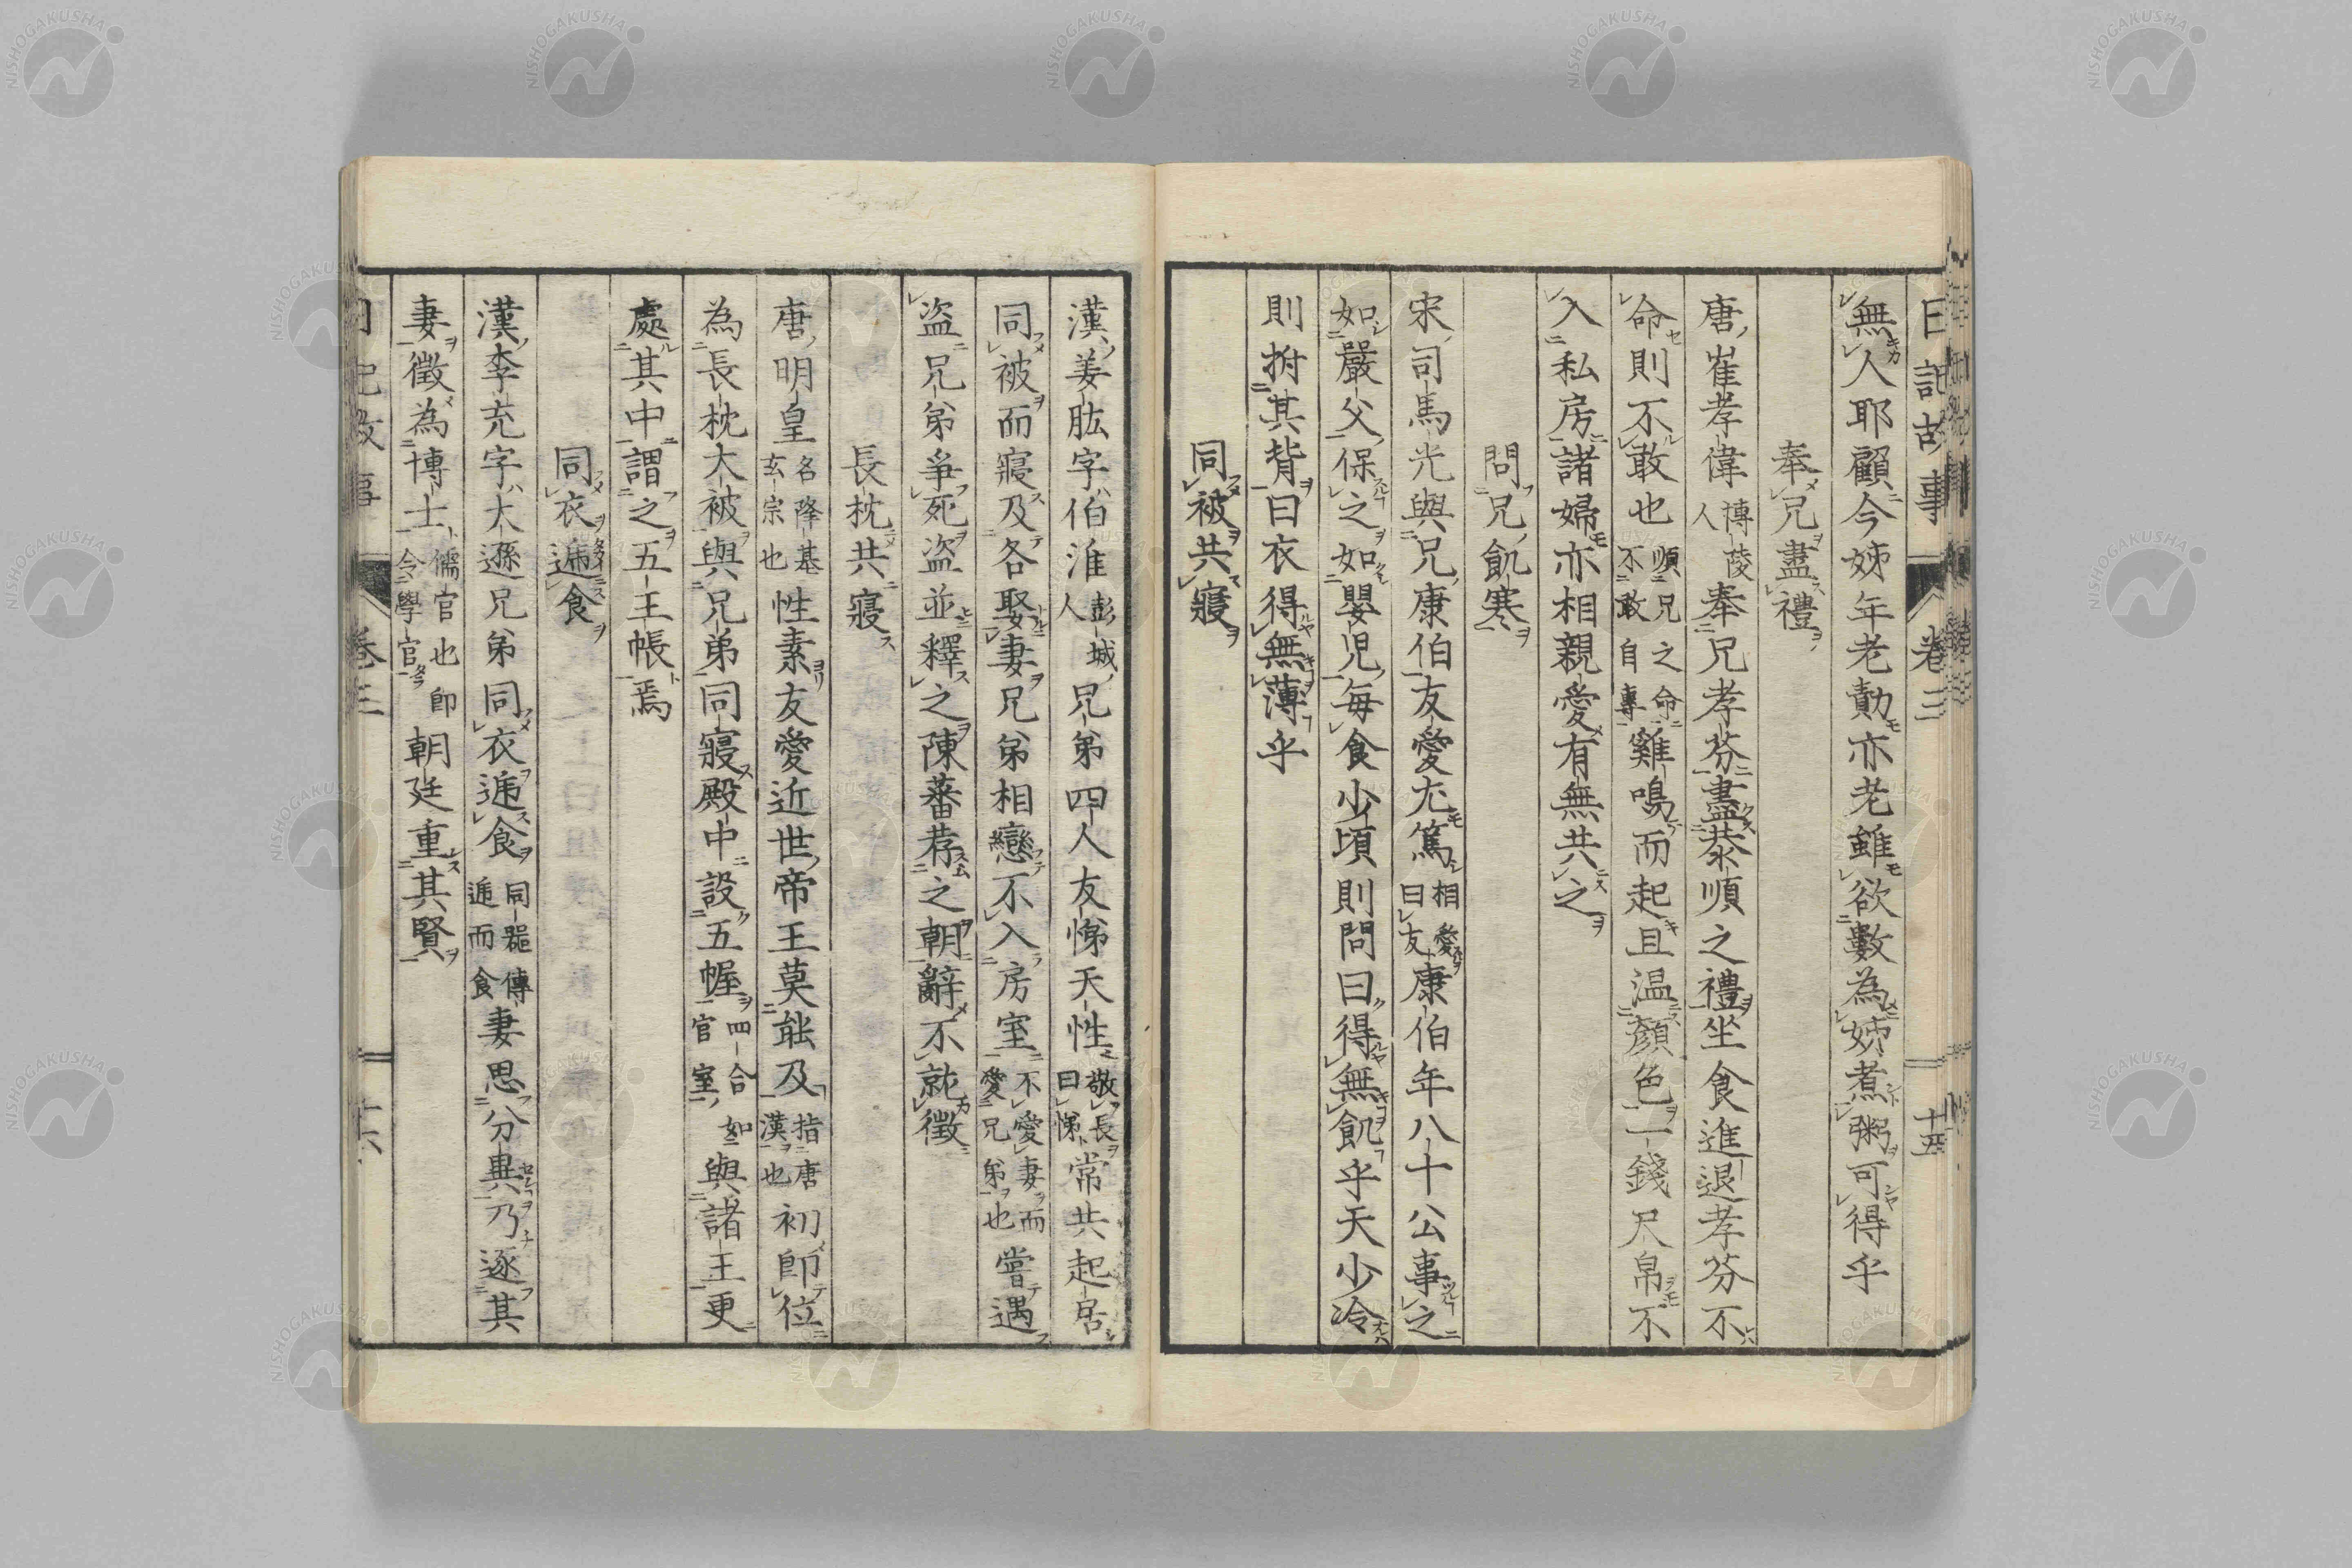 日記故事 卷三 十五
無人耶顧今姊年老勣亦老雖欲數為姊煮粥可得乎
奉兄盡禮
唐崔孝偉博陵人奉兄孝芬盡恭順之禮坐食進退孝芬不
命則不敢也順兄之命不敢自專雞鳴而起且温顏色一錢尺帛不
入私房諸婦亦相親愛有無共之
問兄飢寒
宋司馬光與兄康伯友愛尤篤相愛曰友康伯年八十公事之
如嚴父保之如嬰児每食少頃則問曰得無飢乎天少冷
則拊其背曰衣得無薄乎
同被共寢
漢姜肱字伯淮彭城人兄弟四人友悌天性敬長曰悌常共起居
同被而寢及各娶妻兄弟相戀不入房室不愛妻而愛兄弟也嘗遇
盗兄弟爭死盗並釋之陳蕃荐之朝辭不就徵
長枕共寢
唐明皇名隆基玄宗也性素友愛近世帝王莫能及指唐漢也初即位
為長枕大被與兄弟同寢殿中設五幄四合如官室與諸王更
處其中謂之五王帳焉
同衣遞食
漢李充字大遜兄弟同衣遞食同器傳遞而食妻思分異乃逐其
妻徵為博士儒官也即今學官朝廷重其賢
日記故事 卷三 十六
NISHOGAKUSHA